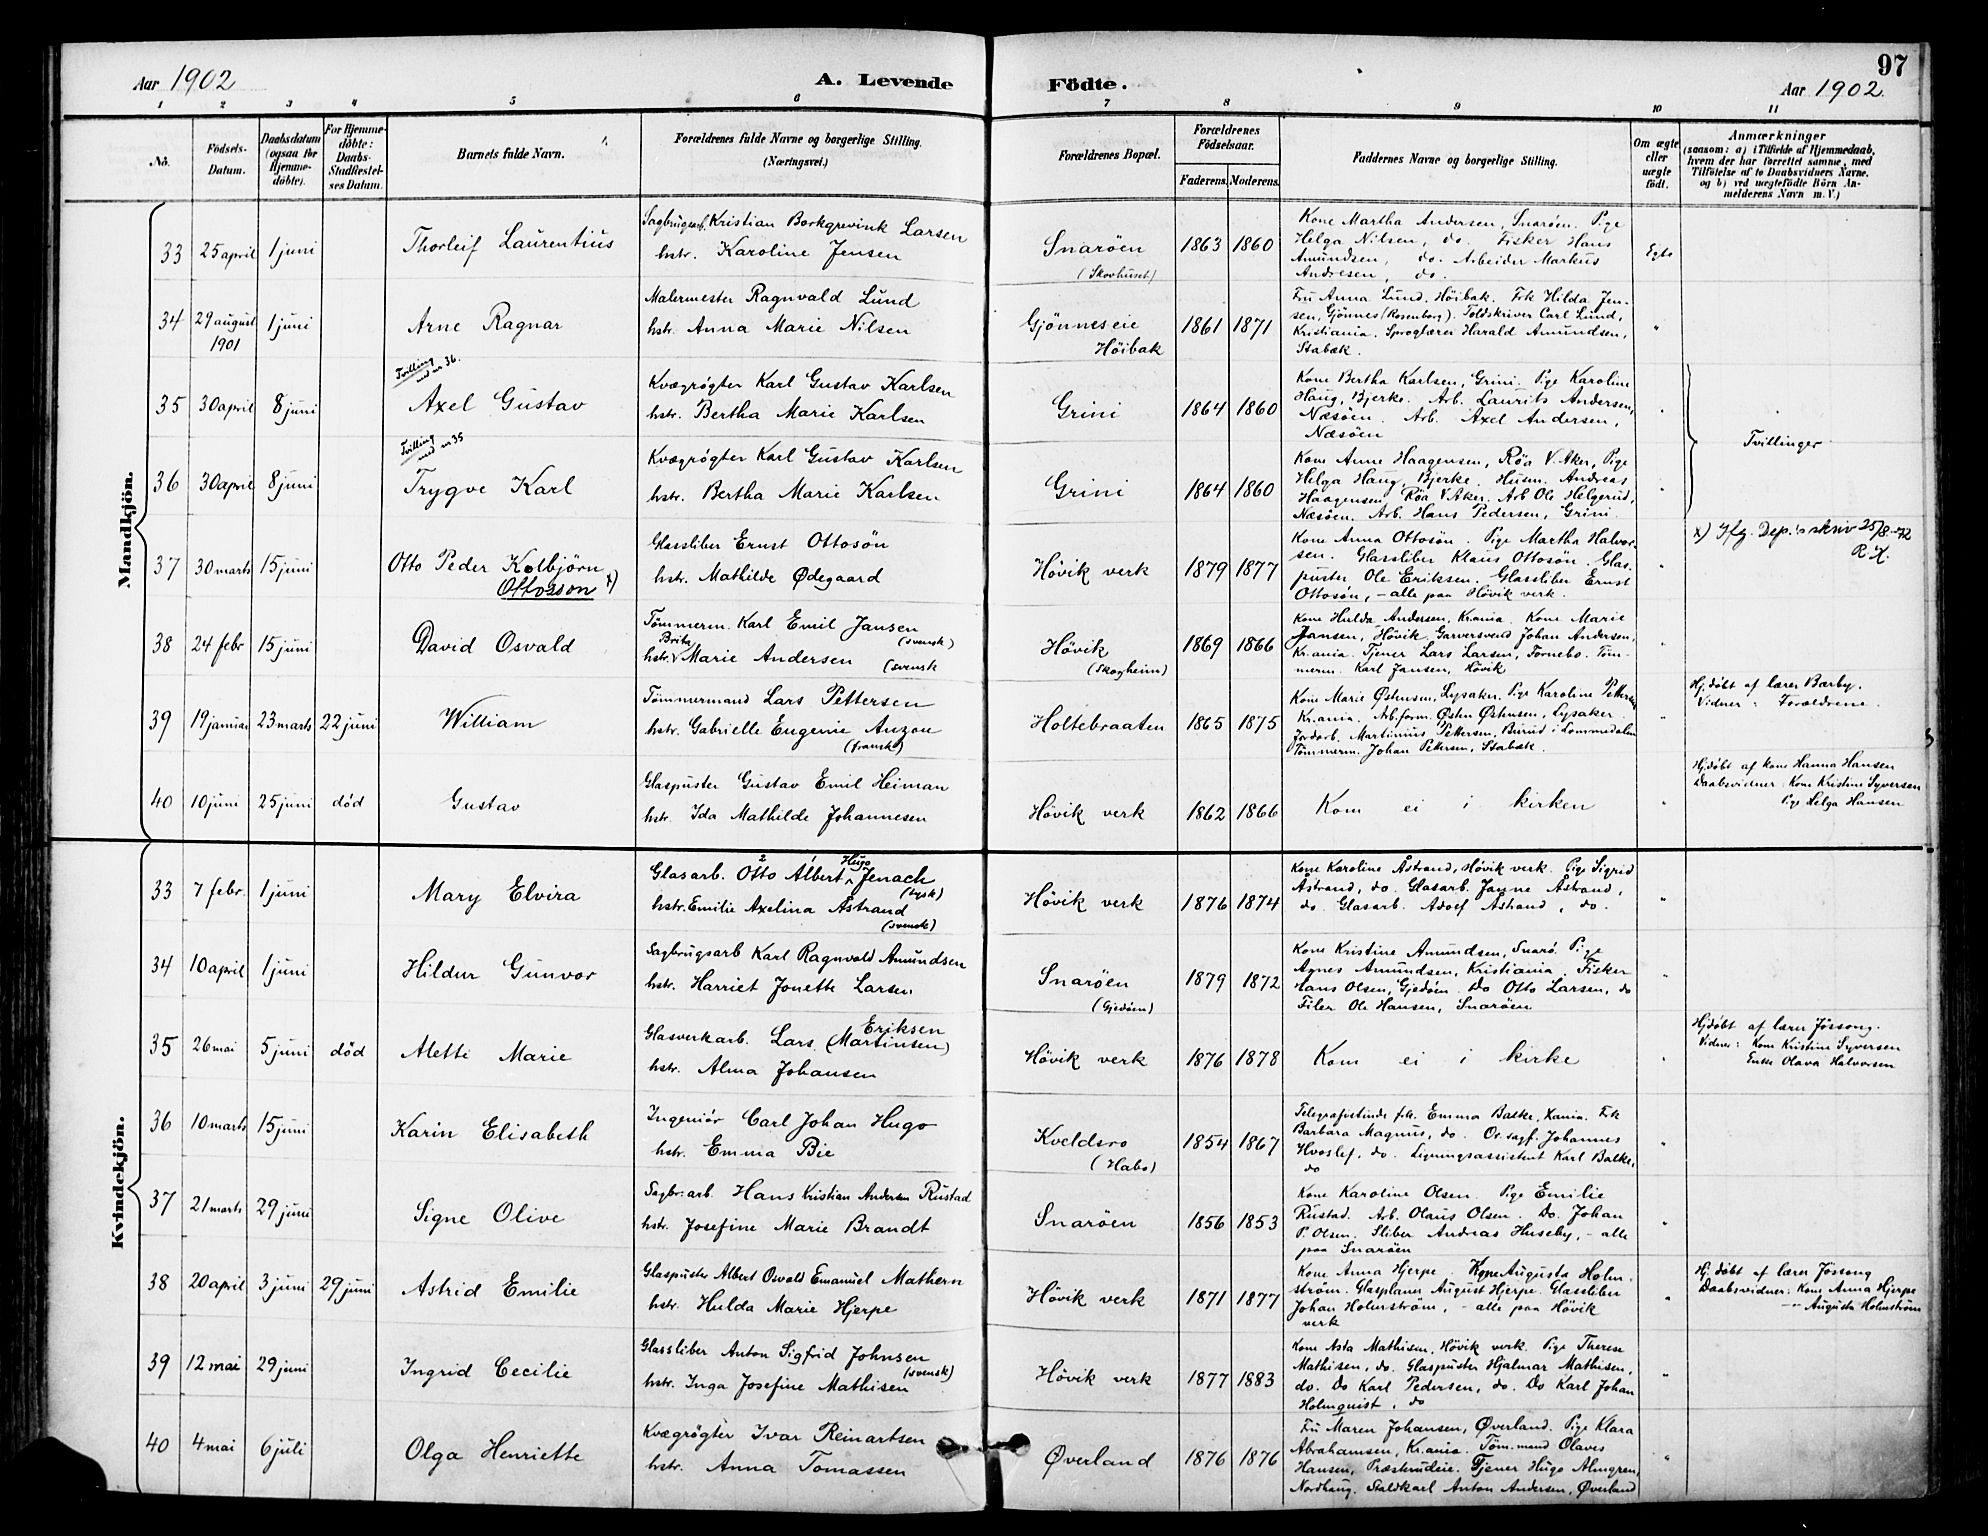 97
Aar 1902
A. Levende
Födte.
Aar 1902.
1 2 3 4 5 6 7 8 9 10 11
No.
Födsels-Datum.
Daabsdatum (ogsaa for Hjemme-döbte).
For Hjemme-döbte: Daabs-Stadfæstel-ses Datum.
Barnets fulde Navn.
Forældrenes fulde Navne og borgerlige Stilling. (Næringsvei.)
Forældrenes Bopæl.
Forældrenes Födselsaar.
Faderens. Moderens.
Faddernes Navne og borgerlige Stilling.
Om ægte eller uægte födt.
Anmærkninger
(saasom: a) i Tilfælde af Hjemmedaab, hvem der har forrettet samme, med Tilföielse af to Daabsvidners Navne. og b) ved uægtefödte Börn An-melderens Navn m. V.)
Mandkjön.
33 25 april 1 juni Thorleif Laurentius
Sagbrugsarb. Kristian Borkgrevink Larsen
hstr. Karoline Jensen
Snarøen
(Skovhuset)
1863 1860
Kone Martha Andersen, Snarøen. Pige
Helga Nilsen, do. Fisker Hans
Amundsen, do. Arbeider Markus
Andresen, do.
Egte
34 29 august 1901 1 juni Arne Ragnar
Malermester Ragnvald Lund
hstr. Anna Marie Nilsen
Gjønneseie
Høibak
1861 1871
Fru Anna Lund, Høibak. Frk Hilda Jen-
sen, Gjönnes (Rosenborg). Toldskriver Carl Lund,
Kristiania. Sproglærer Harald Amundsen,
Stabæk.
"
Tvilling med nr 36.
35 30 april 8 juni Axel Gustav
Kvægrøgter Karl Gustav Karlsen
hstr. Bertha Marie Karlsen
Grini
1864 1860
Kone Bertha Karlsen, Grini. Pige Karoline
Haug, Bjerke. Arb. Laurits Andersen,
Næsöen. Arb. Axel Andersen,
Næsöen
"
Tvillinger
Tvilling med nr 35
36 30 april 8 juni Trygve Karl
Kvægrøgter Karl Gustav Karlsen
hstr. Bertha Marie Karlsen
Grini
1864 1860
Kone Anne Haagensen, Röa V. Aker, Pige
Helga Haug, Bjerke. Husm. Andreas
Haagensen, Röa V. Aker. Arb Ole Helgerud,
Næsöen. Arb. Hans Pedersen, Grini.
"
37 30 marts 15 juni Otto Peder Kolbjörn
Ottosson x)
Glassliber Ernst Ottosøn
hstr. Mathilde Ødegaard
Høvik verk
1879 1877
Kone Anna Ottosøn. Pige Martha Halvor-
sen. Glassliber Klaus Ottosøn. Glas-
puster Ole Eriksen. Glassliber Ernst
Ottosøn, - alle paa Høvik verk.
"
x) Ifg. Dep.'s skriv 25/8-72
R.H.
38 24 febr 15 juni David Osvald
Tömmerm. Karl Emil Jansen
(svensk)
Brita
hstr. Marie Andersen (svensk
Høvik
(Skogheim)
1869 1866
Kone Hulda Andersen, Kr.ania. Kone Marie
Jansen, Høvik. Garversvend Johan Andersen,
Kr.ania. Tjener Lars Larsen, Fornebo. Töm-
merm. Karl Jansen, Høvik
"
39 19 januar 23 marts 22 juni William
Tømmermand Lars Pettersen
hstr. Gabrielle Eugenie Anzou
(fransk)
Holtebraaten
1865 1875
Kone Marie Østensen, Lysaker. Pige Karoline Pettersen
Kr.ania. Arb.form. Østen Østensen, Lysaker.
Jordarb. Martinius Pettersen, Burud i Lommedalen
Tømmerm. Johan Pettersen, Stabæk.
"
Hj.døbt af lærer Bærby.
Vidner: Forældrene.
40 10 juni 25 juni død Gustav
Glaspuster Gustav Emil Heiman
hstr. Ida Mathilde Johannesen
Høvik verk
1862 1866
Kom ei i kirken
"
Hj.døbt af kone Hanna Hansen
Daabsvidner: Kone Kristine Syversen
Pige Helga Hansen
Kvindekjön.
33 7 febr. 1 juni Mary Elvira
Glasarb. Otto Albert Hugo Jenach
(tysk)
hstr. Emilie Axelina Åstrand
(svensk)
Høvik verk
1876 1874
Kone Karoline Åstrand, Høvik verk. Pige Sigrid
Åstrand, do. Glasarb. Janne Åstrand,
do. Glasarb. Adolf Åstrand, do.
"
34 10 april 1 juni Hildur Gunvor
Sagbrugsarb Karl Ragnvald Amundsen
hstr. Harriet Jonette Larsen
Snarøen
(Gjedøen)
1879 1872
Kone Kristine Amundsen, Snarö. Pige
Agnes Amundsen, Kristiania. Fisker
Hans Olsen, Gjedøen. Do Otto Larsen, do
Filer Ole Hansen, Snarøen
"
35 26 mai 5 juni død Alette Marie
Glasverkarb. Lars Eriksen (Martinsen)
hstr. Alma Johansen
Høvik verk
1876 1878
Kom ei i kirke
"
Hj.døbt af lærer Jössong.
Vidner: Kone Kristine Syversen
Enke Olava Halvorsen
36 10 marts 15 juni Karin Elisabeth
Ingeniör Carl Johan Hugo
hstr. Emma Bie
Kveldsro
(Habo)
1854 1867
Telegrafistinde frk. Emma Balke, Xania. Frk
Barbara Magnus, do. Or.sagf. Johannes
Hvoslef, do. Ligningsassistent Karl Balke,
do
"
37 21 marts 29 juni Signe Olive
Sagbr.arb. Hans Kristian Andersen Rustad
hstr. Josefine Marie Brandt
Snarøen
1856 1853
Kone Karoline Olsen. Pige Emilie
Rustad. Arb. Olaus Olsen. Do. Johan
P. Olsen. Sliber Andreas Huseby, - alle
paa Snarøen
"
38 20 april 3 juni 29 juni Astrid Emilie
Glaspuster Albert Osvald Emanuel Mathern
hstr. Hulda Marie Hjerpe
Høvik verk
1871 1877
Kone Anna Hjerpe. Kone Augusta Holm-
ström. Glasplaner August Hjerpe. Glassliber
Johan Holmström, - alle paa Høvik
verk
"
Hj.døbt af lærer Jössong
Daabsvidner: Kone Anna Hjerpe
-"- Augusta Holmström
39 12 mai 29 juni Ingrid Cecilie
Glassliber Anton Sigfrid Johnsen
(svensk)
hstr. Inga Josefine Mathisen
Høvik verk
1877 1883
Kone Asta Mathisen, Høvik verk. Pige Therese
Mathisen, do. Glaspuster Hjalmar Mathisen,
do. Do Karl Pedersen, do. Do Karl Johan
Holmquist, do
"
40 4 mai 6 juli Olga Henriette
Kvægrøgter Ivar Reinartsen
hstr. Anna Tomassen
Øverland
1876 1876
Fru Maren Johansen, Øverland. Pige Klara
Abrahamsen, Kr.ania. Töm.mand Olaves
Hansen, Præsterudeie. Tjener Hugo Almgren,
Nordhaug. Staldkarl Anton Andersen, Øverland
"